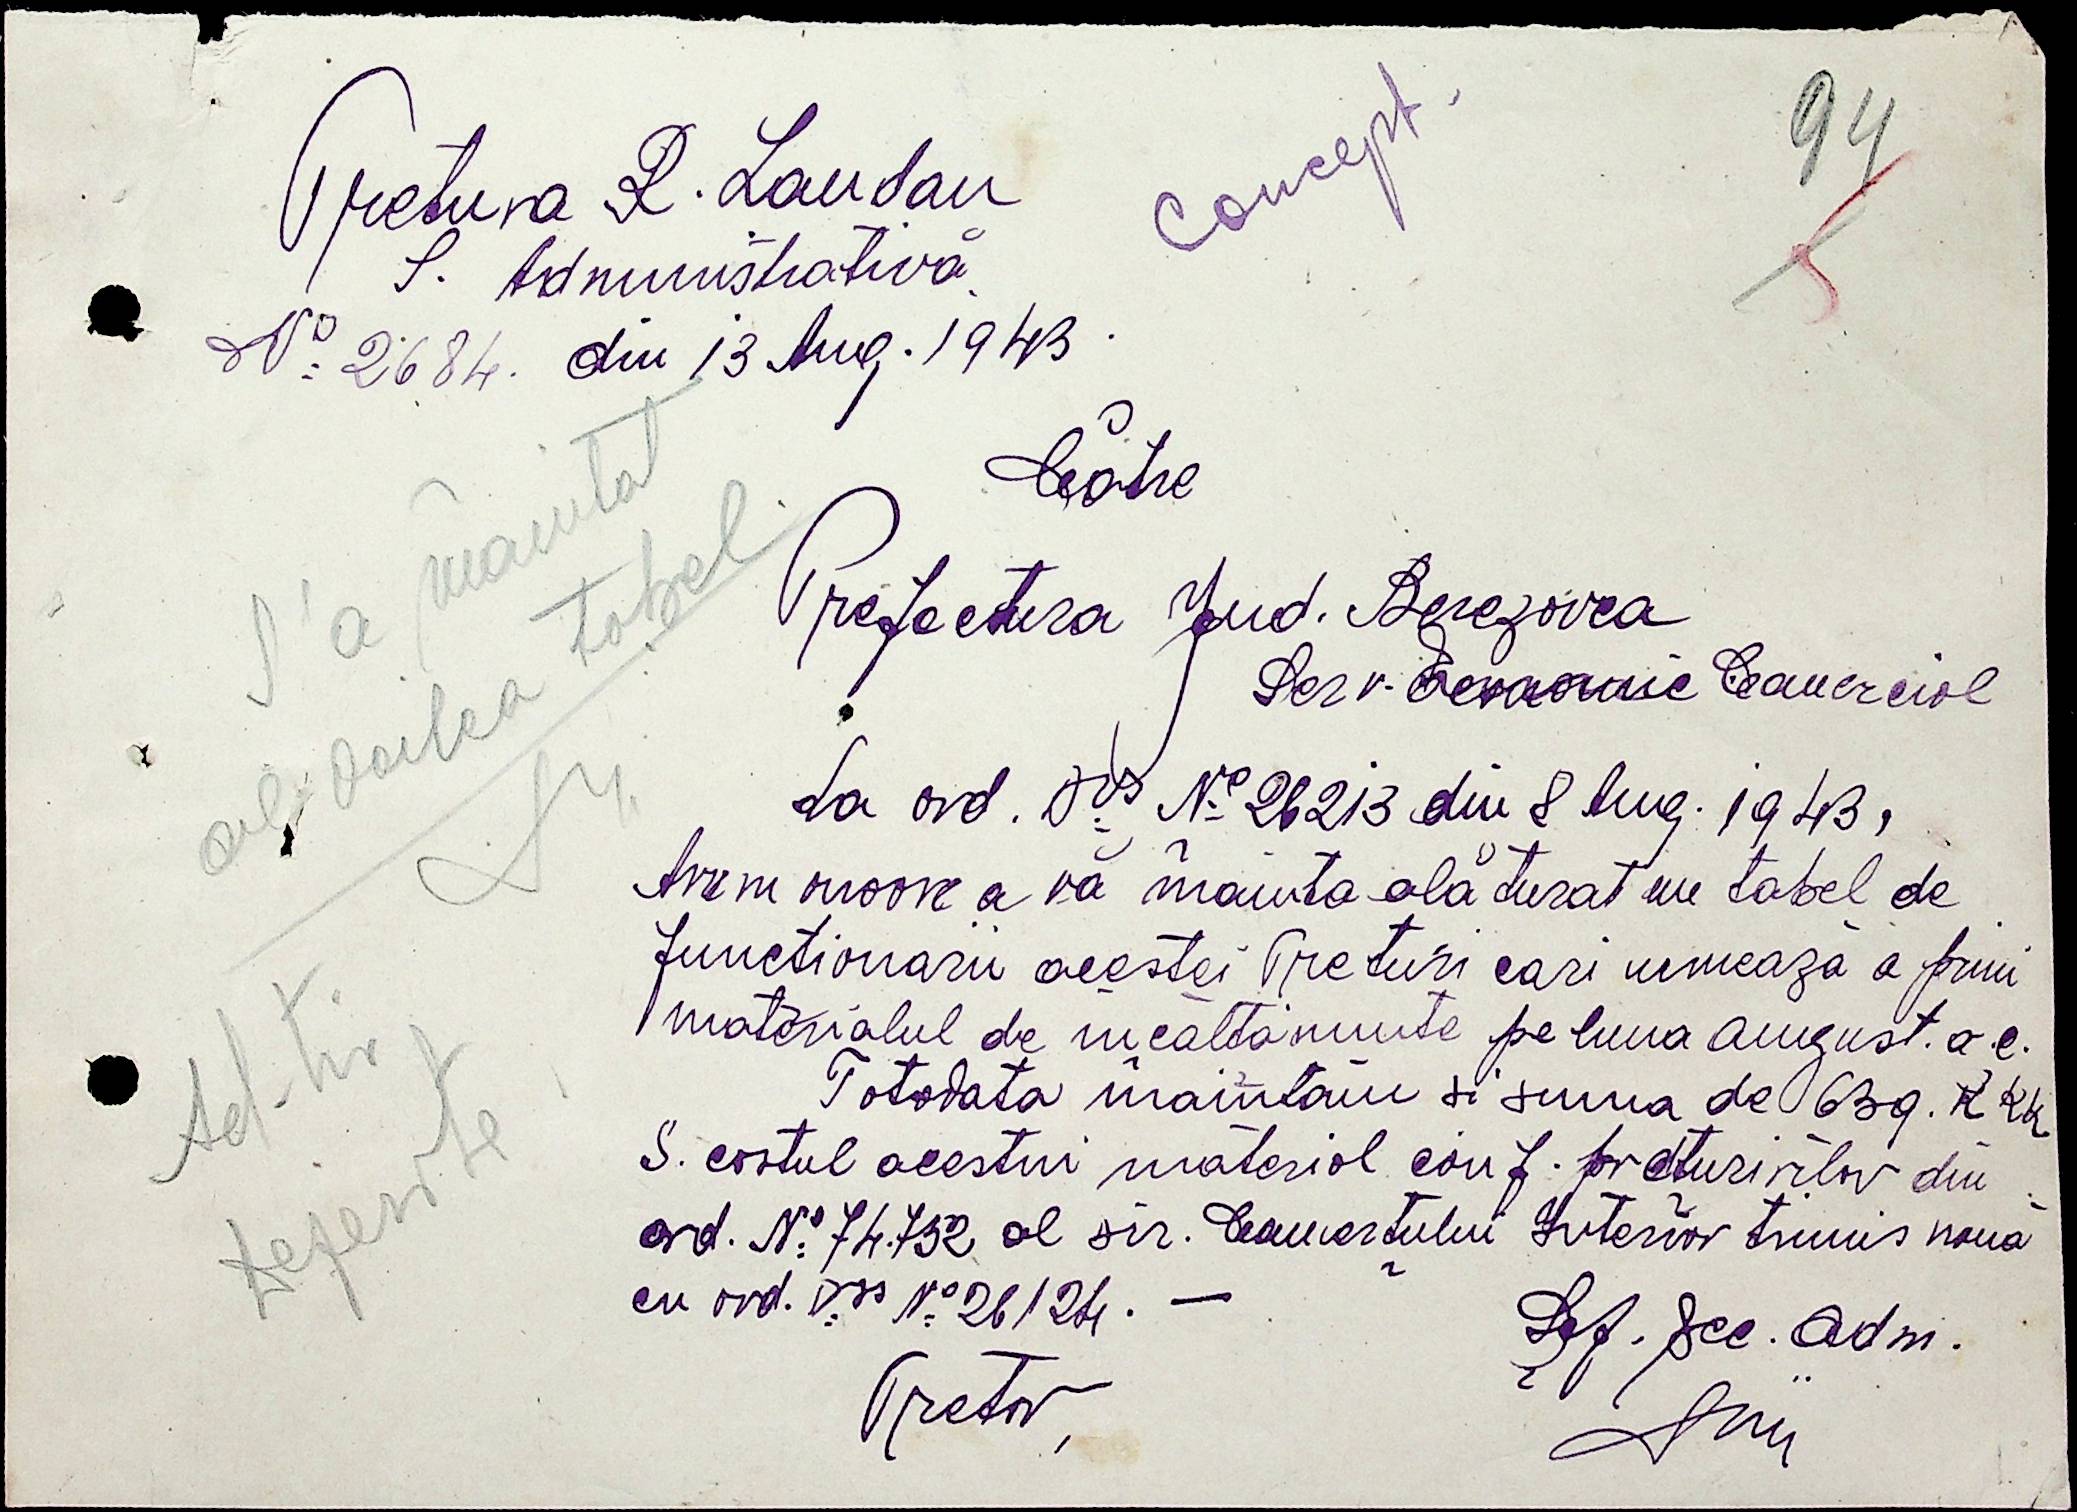 Pretura R. Landau
Concept.
94
S. Administrativă
Nº 2684. din 13 Aug. 1943.
Către
Prefectura Jud. Berezovca
Serv. Economic Comercial
S'a înaintat
al doilea tabel
La ord. Dvs Nº 26213 din 8 Aug. 1943,
Avem onoare a vă înainta alăturat un tabel de
functionarii acestei Preturi cari urmează a primi
materialul de incăltăminte pe luna August. a.c.
Totodata înaintăm si suma de 639. R KK
S. costul acestui material conf. preturirilor din
ord. Nº 74.752 al dir. Comerțului Interior trimis nouă
cu ord. Dvs Nº 26124. —
Șef. Sec. Adm.
Pretor,